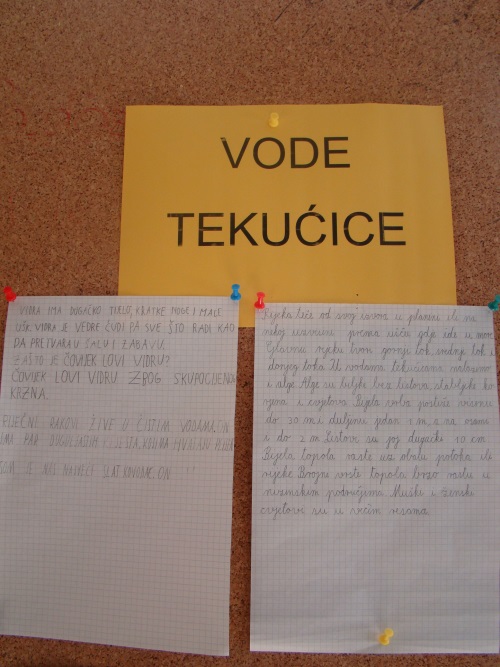 VODE
TEKUĆICE
VIDRA IMA DUGAČKO TIJELO, KRATKE NOGE I MALE
UŠI. VIDRA JE VEDRE ČUDI PA SVE ŠTO RADI KAO
DA PRETVARA U ŠALU I ZABAVU.
ZAŠTO JE ČOVJEK LOVI VIDRU?
ČOVJEK LOVI VIDRU ZBOG SKUPOCJENOG
KRZNA.
RIJEČNI RAKOVI ŽIVE U ČISTIM VODAMA. ON
IMA PAR KLIJEŠTA, KOJIMA
SOM JE NAŠ NAJVEĆI SLATKOVODNI
Rijeka teče od svog izvora u planini ili na
nižoj uzvisini prema ušću gdje ide u more.
Glavnu rijeku tvori gornji tok, srednji tok i
donji tok. U vodama tekućicama nalazimo
i alge. Alge su biljke bez listova, stabljike, ko
rijena i cvjetova. Bijela vrba postiže visinu
do 30 m i duljinu jedan m, a na osami
i do 2 m. Listovi su joj dugački 10 cm.
Bijela topola raste uz obalu potoka ili
rijeke. Brojne vrste topola brzo rastu u
nizinskim područjima. Muški i ženski
cvjetovi su u resama.